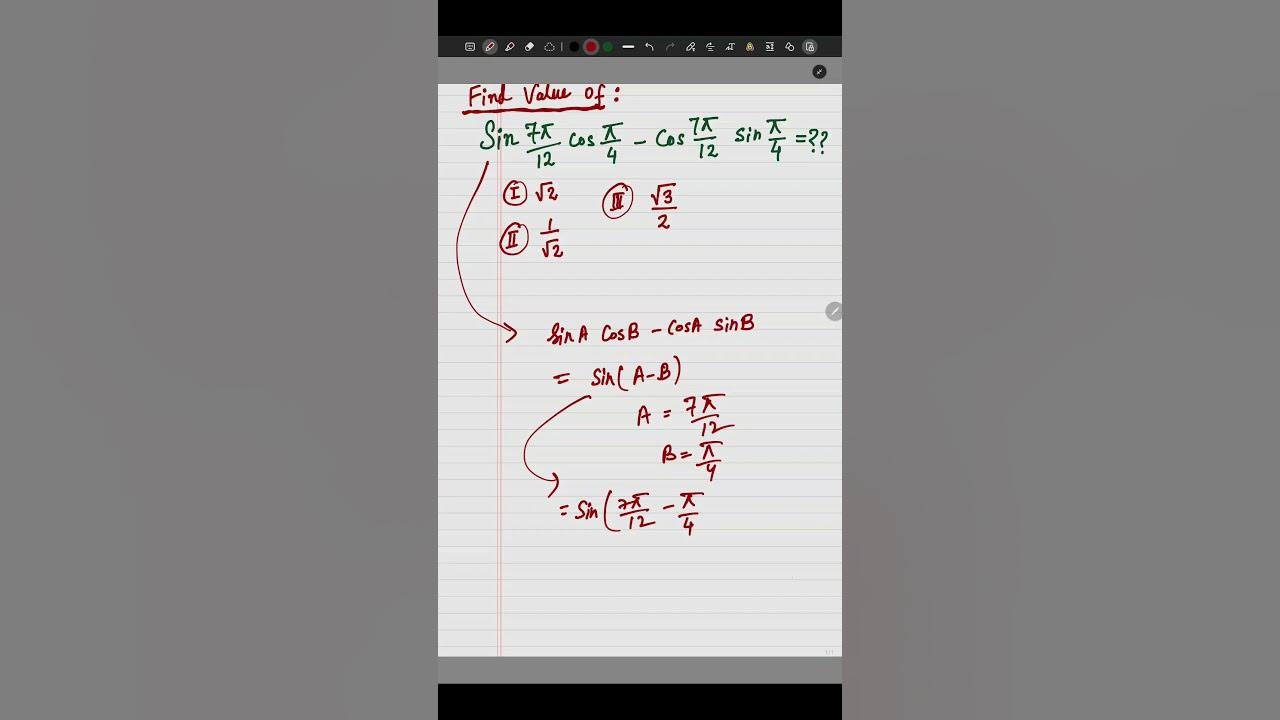 Find Value Of :
Sin 7π/12 cos π/4 - cos 7π/12 sin π/4 =??
I √2
III √3/2
II 1/√2
SinA CosB - CosA SinB
= Sin(A-B)
A = 7π/12
B = π/4
= Sin(7π/12 - π/4
1/1